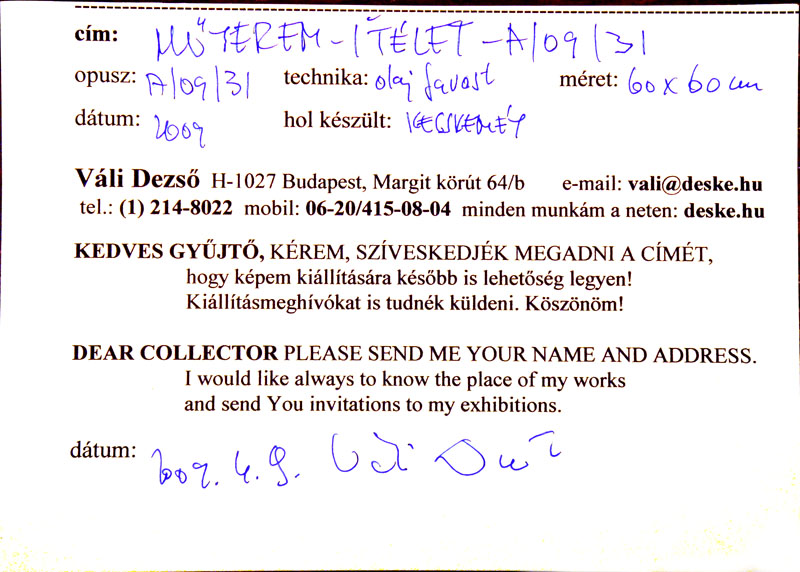 cím: MŰTEREM-ÍTÉLET-A/09/31
opusz: A/09/31 technika: olaj farost méret: 60 x 60 cm
dátum: 2009 hol készült: KECSKEMÉT
Váli Dezső H-1027 Budapest, Margit körút 64/b e-mail: vali@deske.hu
tel.: (1) 214-8022 mobil: 06-20/415-08-04 minden munkám a neten: deske.hu
KEDVES GYŰJTŐ, KÉREM, SZÍVESKEDJÉK MEGADNI A CÍMÉT,
hogy képem kiállítására később is lehetőség legyen!
Kiállításmeghívókat is tudnék küldeni. Köszönöm!
DEAR COLLECTOR PLEASE SEND ME YOUR NAME AND ADDRESS.
I would like always to know the place of my works
and send You invitations to my exhibitions.
dátum: 2009. 4. 9. Váli Dezső